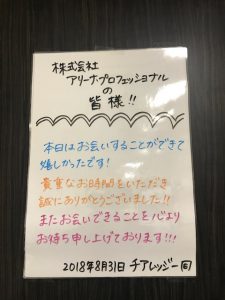 株式会社
アリーナ・プロフェッショナル
の
皆様!!
本日はお会いすることができて
嬉しかったです!
貴重なお時間をいただき
誠にありがとうございました!!
またお会いできることを心より
お待ち申し上げております!!!
2018年8月31日 チアレッジー同